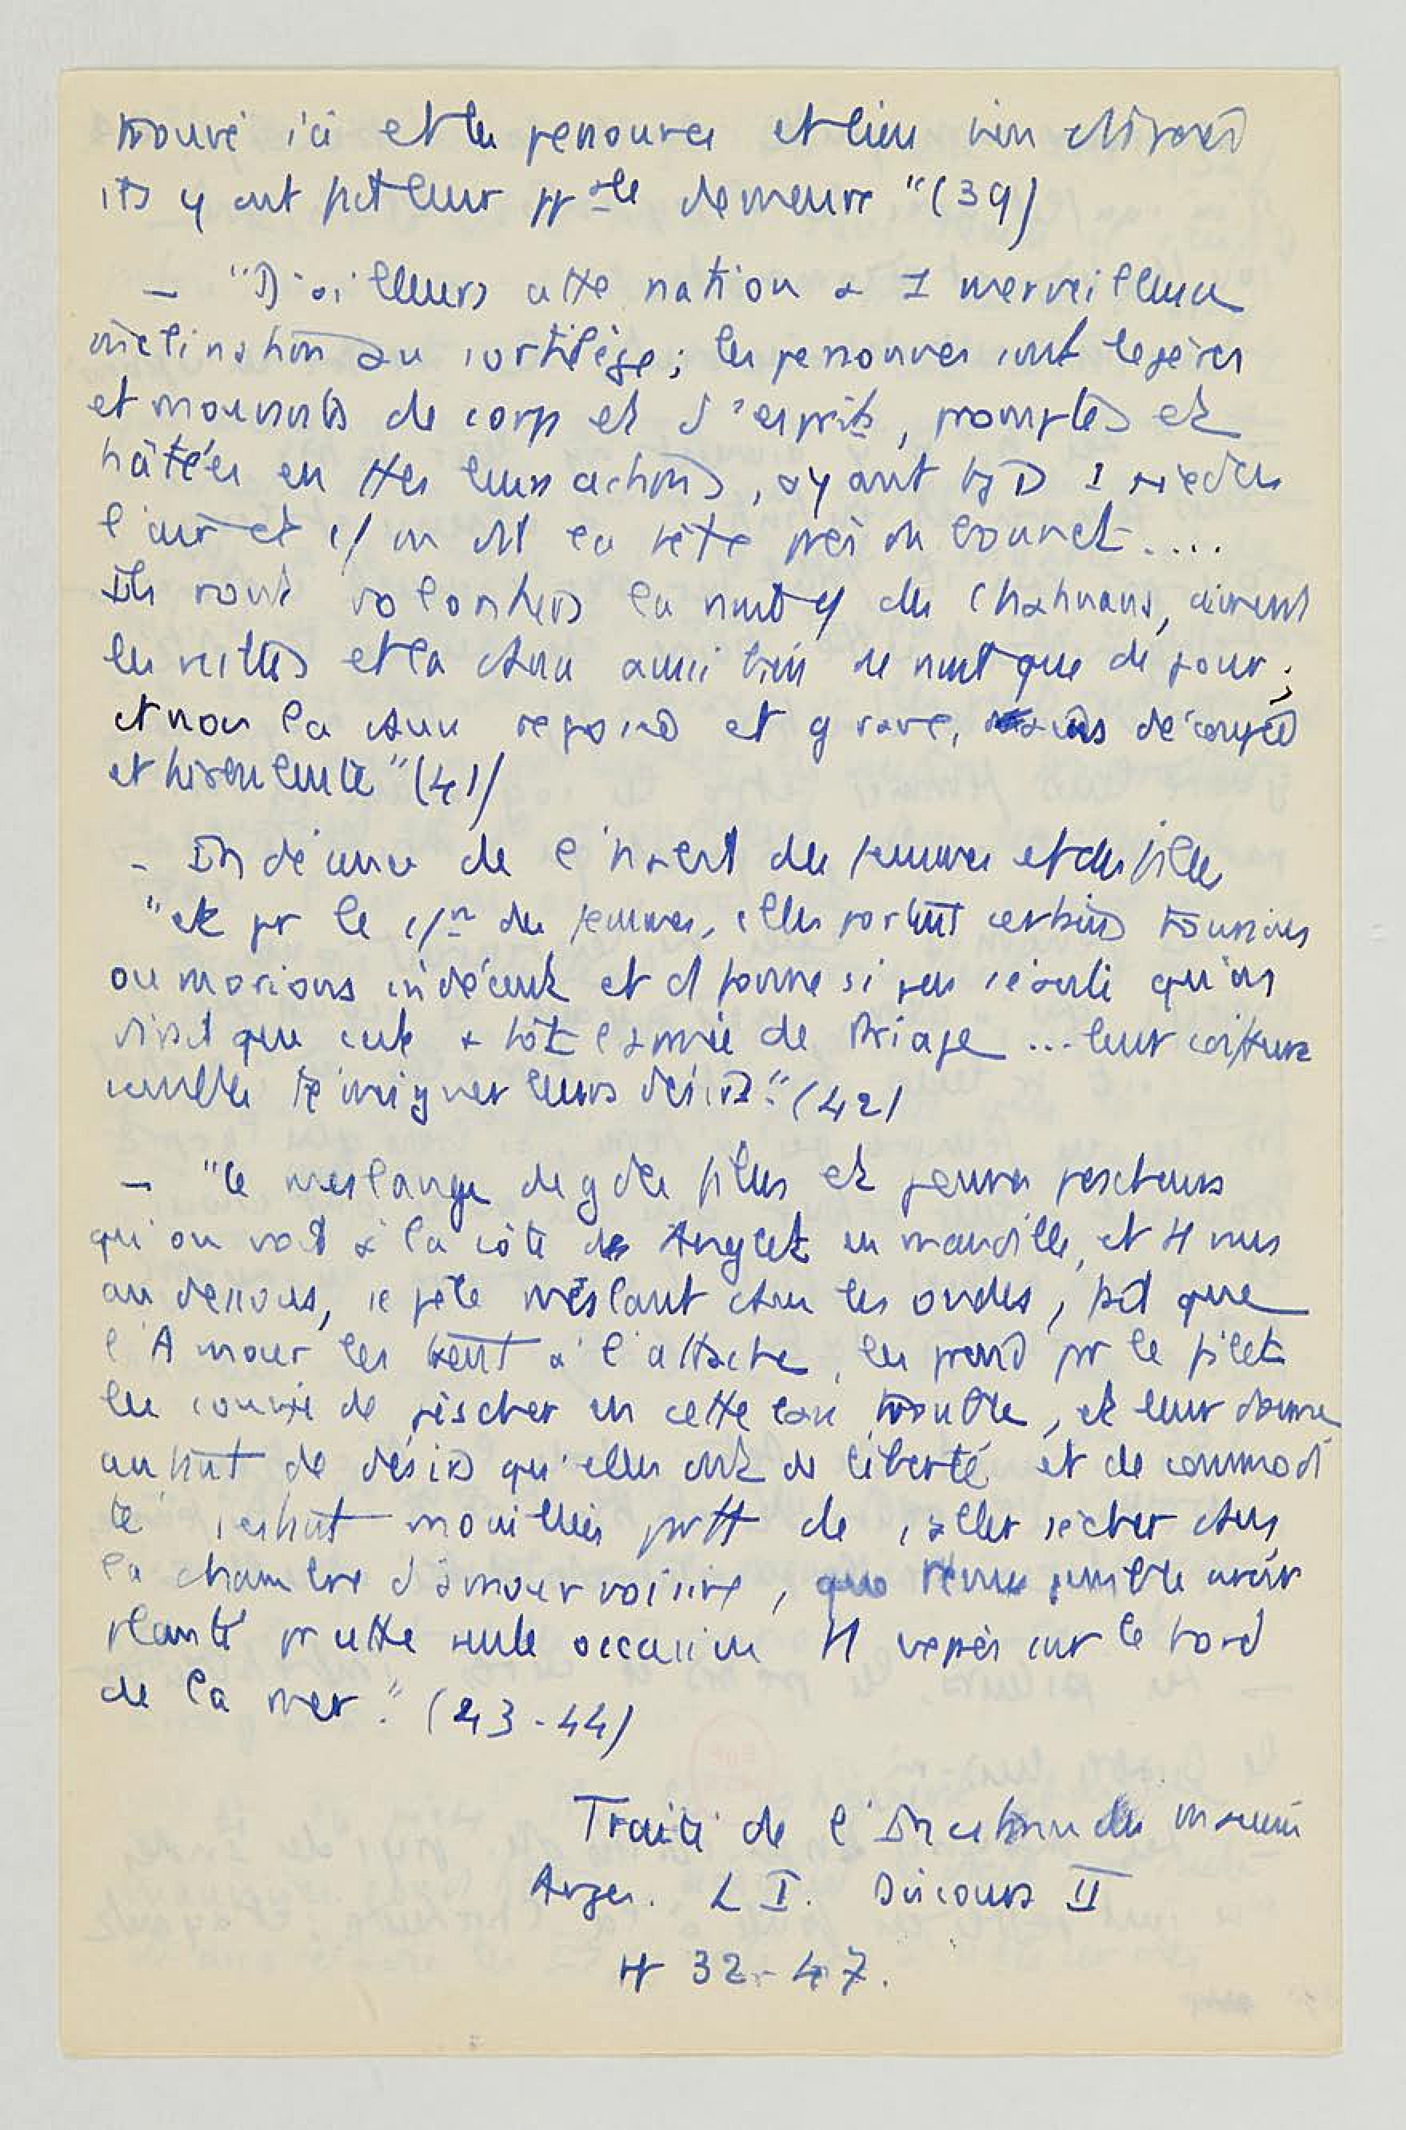 trouvé ici et les personnes et lieu bien disposés
ils y ont fait leur ppale demeure" (39)
— "D'ailleurs cette nation a 1 merveilleuse
inclination au sortilège; les personnes sont legères
et mouvantes de corps et d'esprits, promptes et
hâtées en ttes leurs actions, ayant tjs 1 pied en
l'air et c/ on dit la tête près du bonnet....
Ils vont volontiers la nuit c/ des chahuans, aiment
les veilles et la danse aussi bien de nuit que de jour;
et non la danse reposée et grave, mais découpée
et turbulente" (41)
- Indécence de l' des femmes et des filles
"et pr le c/ des femmes, elles portent certains
ou morions indécents et d forme si peu séante qu'on
dirait que c'est + tôt l'armée de Priape ... leur coiffure
semble témoigner leurs désirs." (42)
— "le meslange de gdes filles et jeunes pescheurs
qu'on voit à la côte d'Anglet en mandille, et tt nus
au dessous, se pêle meslant dans les ondes, fait que
l'Amour les tient à l'attache, les prend pr le filet
les convie de pescher en cette eau trouble, et leur donne
autant de désir qu'elles ont de liberté et de commodi
té s'estant mouillées partt de s'aller sécher dans
la chambre d'amour voisine, que Vénus semble avoir
planté pr cette seule occasion tt exprès sur le bord
de la mer." (43-44)
Traité de l'Inconstance des mauvais
Anges. L I. Discours II
pp 32-47.